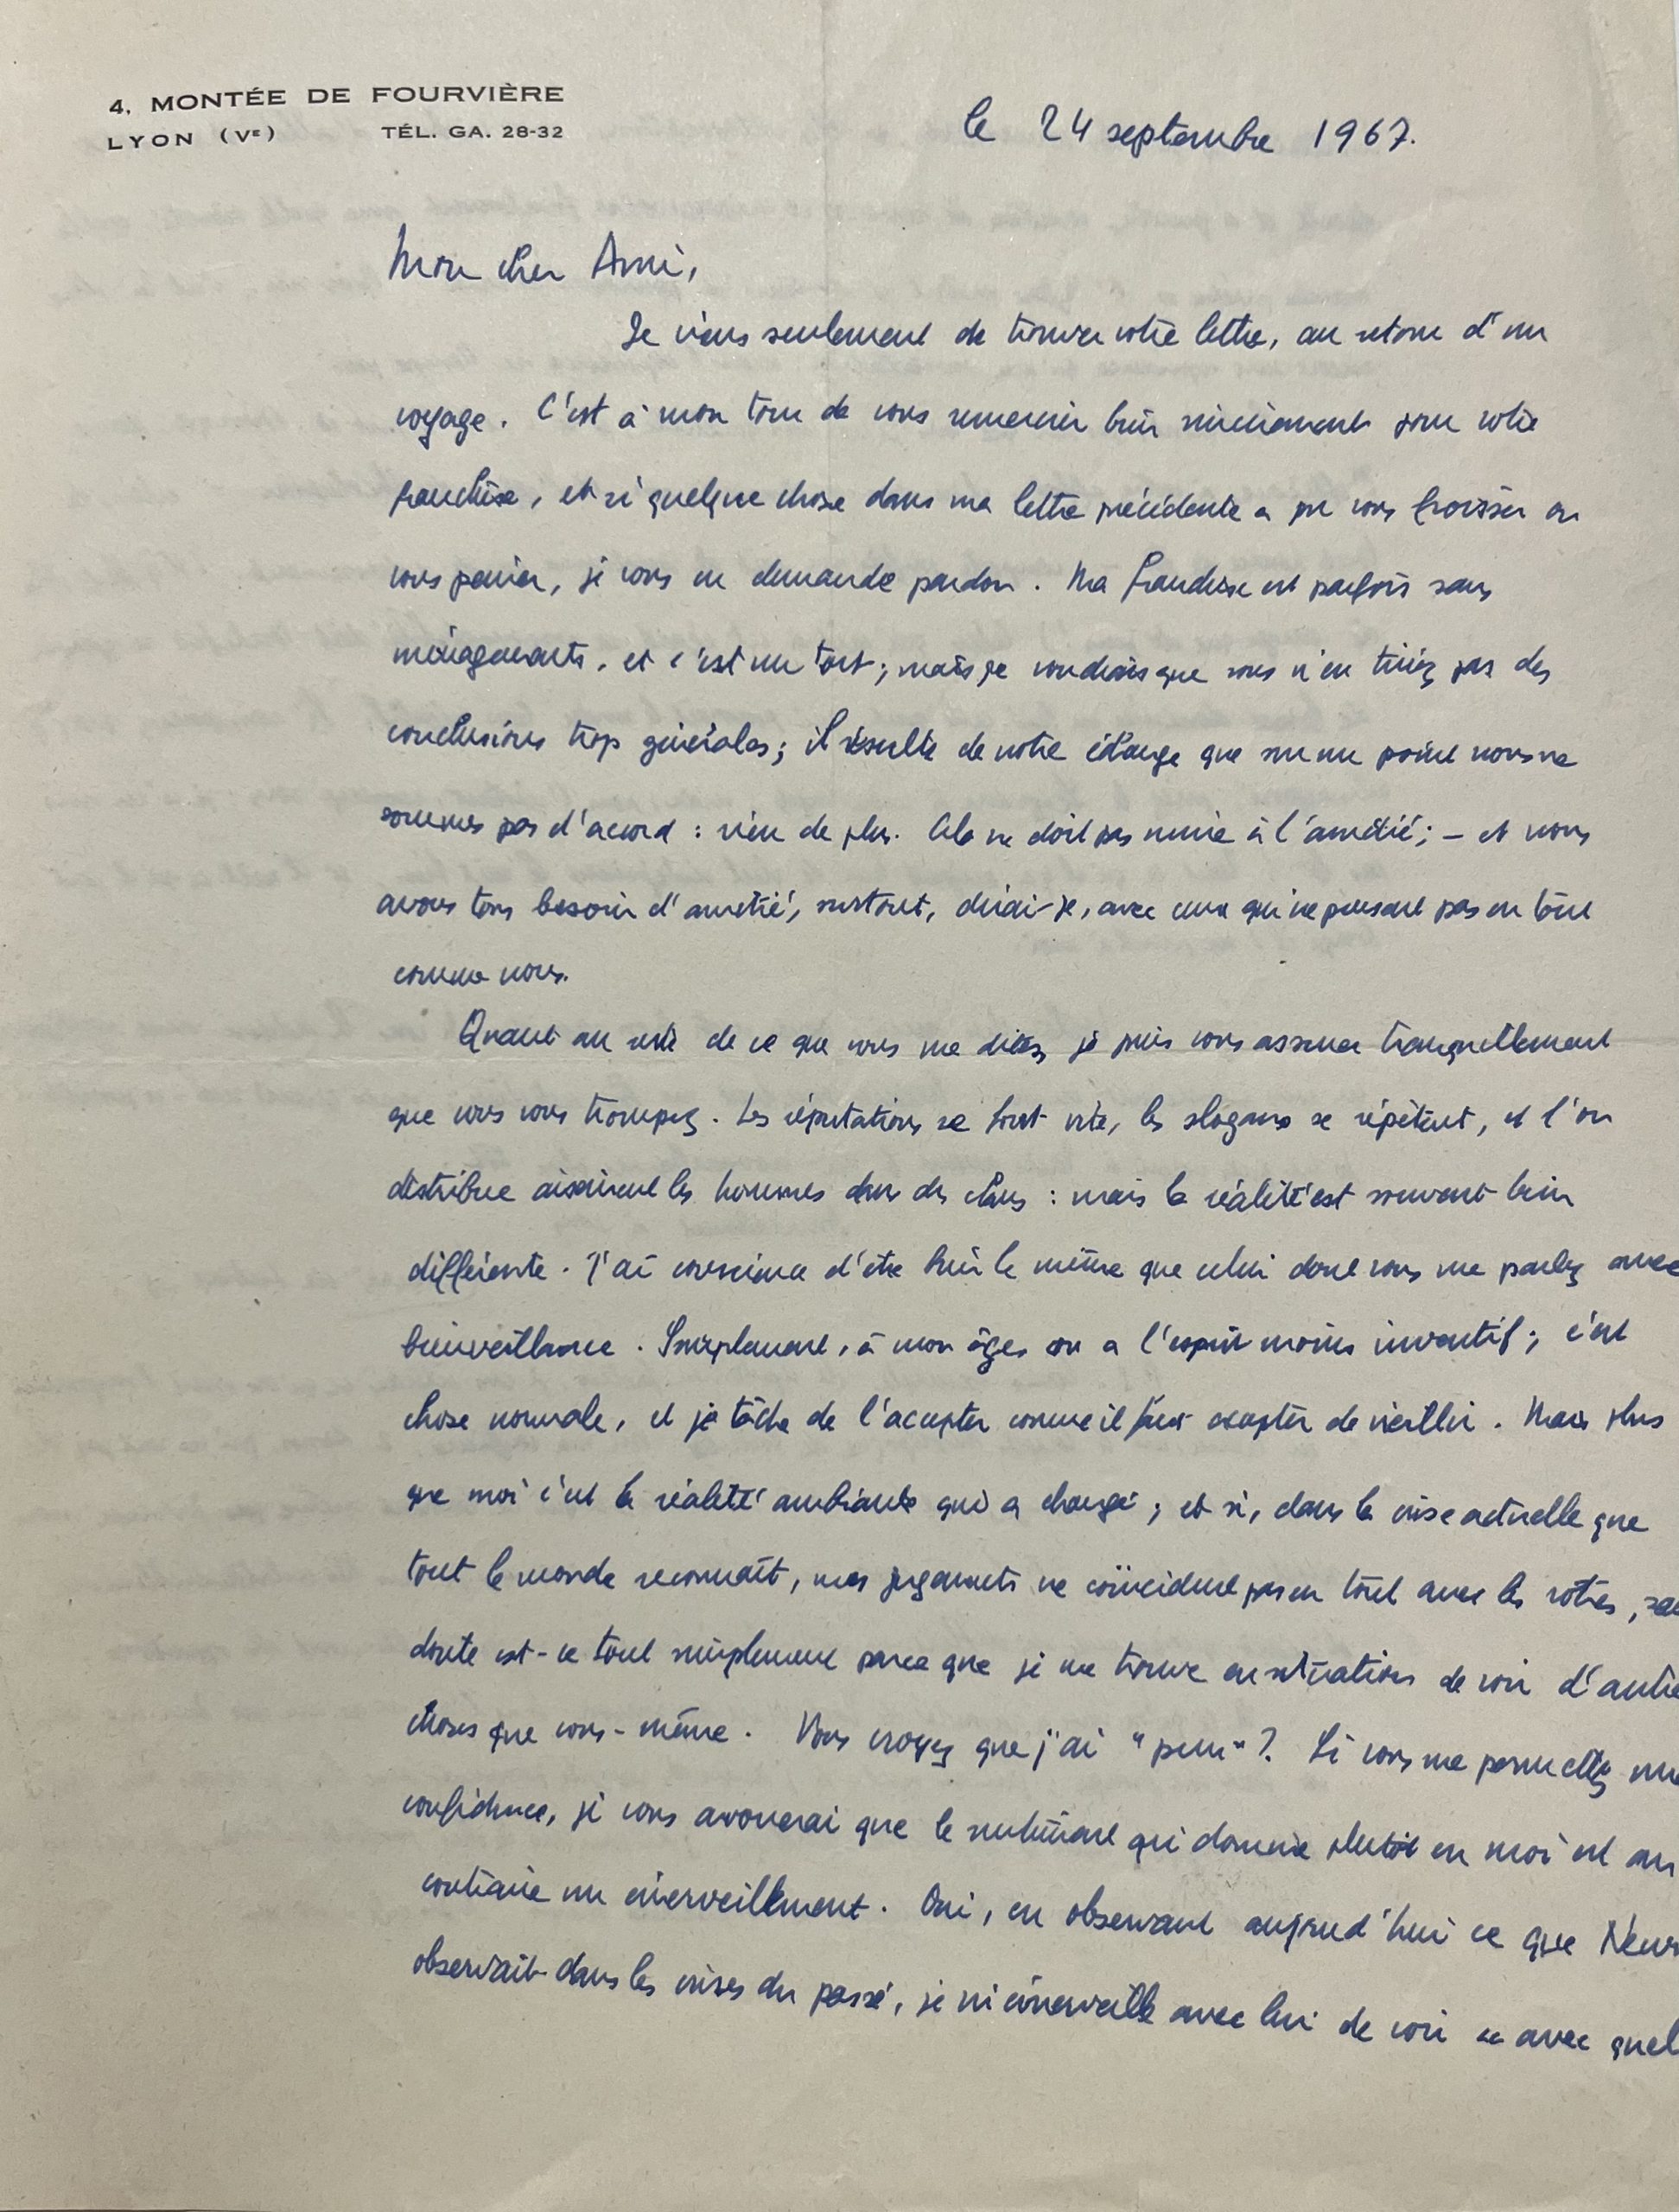 4, MONTÉE DE FOURVIÈRE
LYON (Vᴱ) TÉL. GA. 28-32
le 24 septembre 1967.
Mon cher Ami,
Je viens seulement de trouver votre lettre, au retour d'un
voyage. C'est à mon tour de vous remercier bien sincèrement pour votre
franchise, et si quelque chose dans ma lettre précédente a pu vous froisser ou
vous peiner, je vous en demande pardon. Ma franchise est parfois sans
ménagements, et c'est un tort; mais je voudrais que vous n'en tiriez pas des
conclusions trop générales; il résulte de notre échange que sur un point nous ne
sommes pas d'accord : rien de plus. Cela ne doit pas nuire à l'amitié; – et nous
avons tous besoin d'amitié, surtout, dirai-je, avec ceux qui ne pensent pas en tout
comme nous.
Quant au reste de ce que vous me dites, je puis vous assurer tranquillement
que vous vous trompez. Les réputations se font vite, les slogans se répètent, et l'on
distribue aisément les hommes dans des clans : mais la réalité est souvent bien
différente. J'ai conscience d'être bien le même que celui dont vous me parlez avec
bienveillance. Simplement, à mon âge, on a l'esprit moins inventif; c'est
chose normale, et je tâche de l'accepter comme il faut accepter de vieillir. Mais plus
que moi c'est la réalité ambiante qui a changé; et si, dans la crise actuelle que
tout le monde reconnaît, mes jugements ne coïncident pas en tout avec les vôtres,
doute est-ce tout simplement parce que je me trouve en situation de voir d'autre
choses que vous-même. Vous croyez que j'ai "peur"? Si vous me permettez une
confidence, je vous avouerai que le sentiment qui domine plutôt en moi est au
contraire un émerveillement. Oui, en observant aujourd'hui ce que Newm
observait dans les crises du passé, je m'émerveille avec lui de voir avec quel